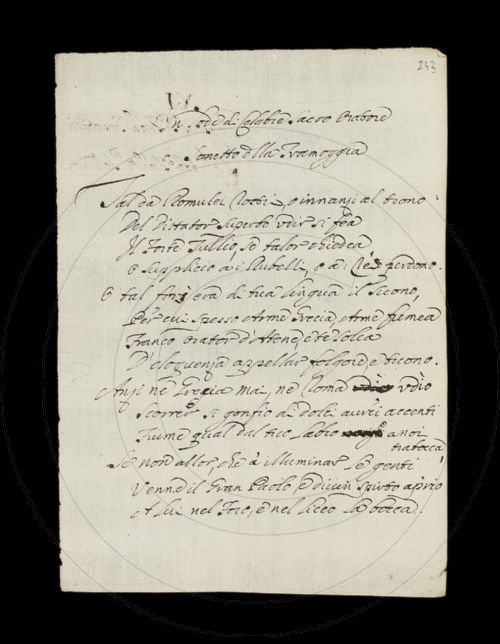 243
In lode di Celebre Sacro Oratore
Sonetto della Tramoggia
Tal da Romulei Rostri, o innanzi al trono
Del Dittator superbo udir si fea
Il forte Tullio, se talor chiedea
O supplicio a i Rubelli, o a i Rei perdono.
E tal forse era di tua lingua il suono,
Per cui spesso Atene
Franco orator d'Atene, e
D'eloquenza appellar folgore, e tuono.
Anzi nè Grecia mai, nè Roma udio
Scorrer si gonfio di dolci aurei accenti
Fiume qual dal tuo labio a noi
trabocca
Se non allor che à illuminar le genti
Venne il Gran Paolo, e divin spirto aprio
A lui nel Foro, e nel liceo la bocca.